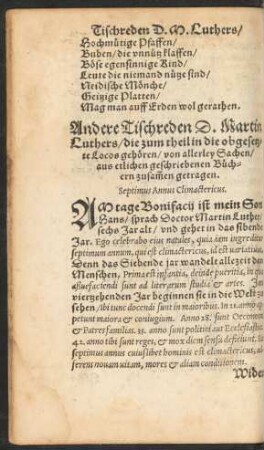 Tischreden D. M. Luthers/
Hochmütige Pfaffen/
Buben/ die vnnütz klaffen/
Böse egensinnige Kind/
Leute die niemand nütze sind/
Neidische Mönche/
Geitzige Platten/
Mag man auff Erden wol gerathen.
Andere Tischreden D. Martin
Luthers/ die zum theil in die obgesetz-
te Locos gehören/ von allerley Sachen/
aus etlichen geschriebenen Büch-
ern zusamen getragen.
Septimus Annus Climactericus.
AM tage Bonifacij ist mein Son
Hans/ sprach Doctor Martin Luther/
sechs Jar alt/ vnd gehet in das siebende
Jar. Ego celebrabo eius natales, quia iam ingreditur
septimum annum, qui est climactericus, id est variatiuus.
Denn das Siebende jar wandelt allezeit den
Menschen, Prima est infantia, deinde pueritia, in qua
assuefaciendi sunt ad literarum studia & artes. Im
vierzehenden Jar beginnen sie in die Welt zu
sehen/ ibi tunc docendi sunt in maioribus. In 21. anno ap-
petunt maiora & coniugium. Anno 28. sunt Oeconomi
& Patresfamilias. 35. anno sunt politici aut Ecclesiastici.
42. anno tibi sunt reges, & mox diem sensa deficiunt, ita
septimus annus cuiuslibet hominis est climactericus, af-
ferens nouam uitam, mores & aliam conditionem.
Wider